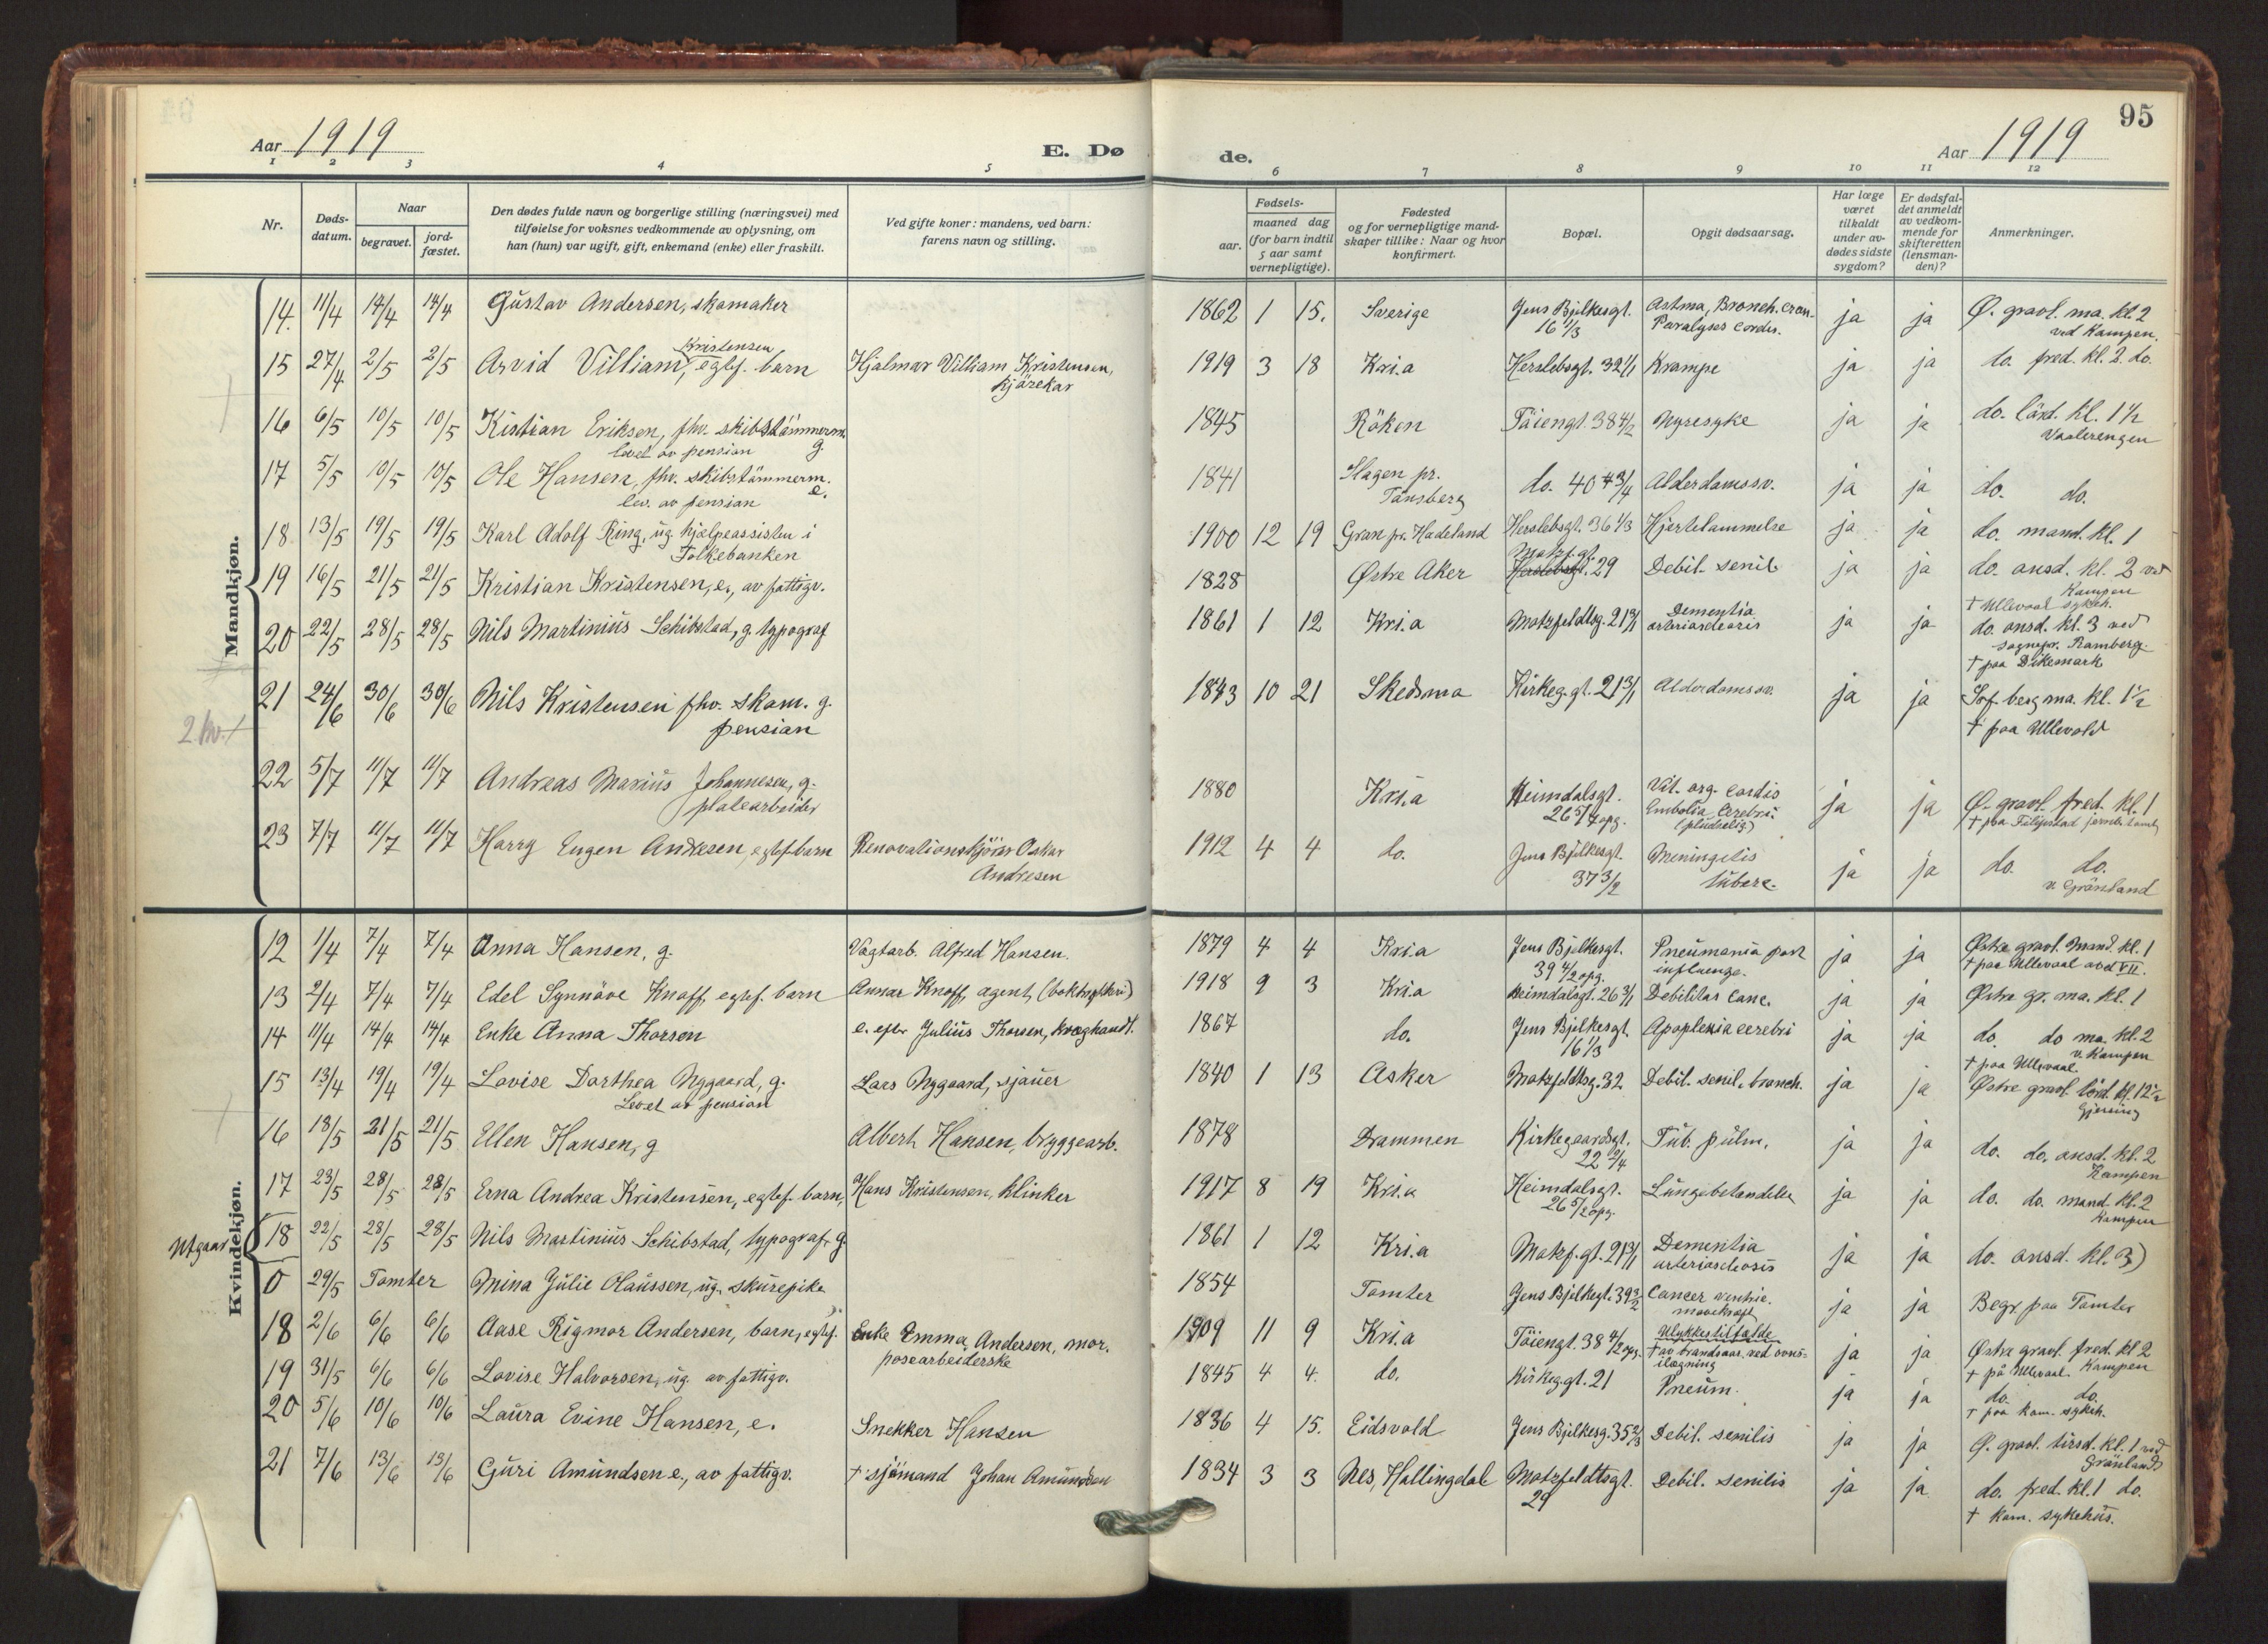 95
Aar 1919
E. Døde.
Aar 1919
1 2 3 4 5 6 7 8 9 10 11 12
Nr.
Døds-datum.
Naar
begravet.
jord-fæstet.
Den dødes fulde navn og borgerlige stilling (næringsvei) med
tilføielse for voksnes vedkommende av oplysning, om
han (hun) var ugift, gift, enkemand (enke) eller fraskilt.
Ved gifte koner: mandens, ved barn:
farens navn og stilling.
Fødsels-
aar.
maaned dag
(for barn indtil
5 aar samt
vernepligtige).
Fødested
og for vernepligtige mand-
skaper tillike: Naar og hvor
konfirmert.
Bopæl.
Opgit dødsaarsag.
Har læge
været
tilkaldt
under av-
dødes sidste
sygdom?
Er dødsfal-
det anmeldt
av vedkom-
mende for
skifteretten
(lensman-
den)?
Anmerkninger.
Mandkjøn.
14. 11/4 14/4 14/4 Gustav Andersen, skomaker 1862 1 15. Sverige Jens Bjelkesgt. 16 1/3 Astma, Bronch. cron. Paralyses cordis. ja ja Ø. gravl. ma. kl. 2 ved Kampen.
15 27/4 2/5 2/5 Arvid Villiam Kristensen, egtef. barn Hjalmar Villiam Kristensen, kjørekar 1919 3 18 Kri.a Herslebsgt. 32 1/1 Krampe ja ja do. fred. kl. 2. do.
16 6/5 10/5 10/5 Kistian Eriksen, fhv. skibstømmerm. g. levet av pension 1845 Röken Töiengt. 38 4/2 Nyresyke ja ja do. lörd. kl. 1 1/2 Vaalerengen
17 5/5 10/5 10/5 Ole Hansen, fhv. skibstømmerm. e. lev. av pension 1841 Slagen pr. Tønsberg do. 40 43/4 Alderdomssv. ja ja do. do.
18 13/5 19/5 19/5 Karl Adolf Ring, ug. hjelpeassisten i Folkebanken 1900 12 19 Gran pr. Hadeland Herslebsgt. 36 1/3 Hjertelammelse ja ja do. mand. kl. 1
19 16/5 21/5 21/5 Kristian Kristensen, e., av fattigv. 1828 Østre Aker Motzf. gt. Herslebsgt. 29 Debil. senil ja ja do. onsd. kl. 2 ved Kampen † Ullevaal sykeh.
20 22/5 28/5 28/5 Nils Martinius Schibstad, g. typograf 1861 1 12 Kri.a Motzfeldtsg. 21 3/1 Dementia arterioscleoris ja ja do. onsd. kl. 3 ved sognepr. Ramberg. † paa Dikemark
21 24/6 30/6 30/6 Nils Kristensen fhv. skom. g. pension 1843 10 21 Skedsmo Kirkeg.gt. 21 3/1 Alderdomssv. ja ja Sof. berg ma. kl. 1 1/2 † paa Ullevold
2 kv. +
22 5/7 11/7 11/7 Andreas Marius Johannesen, g. platearbeider 1880 Kri.a Heimdalsgt. 26 5/4 opg. Vit. org. cordis Embolia Cerebri (pludselig) ja ja Ø. gravl. fred. kl. 1
23 7/7 11/7 11/7 Harry Eugen Andresen, egtef. barn Renovationskjörer Oskar Andresen 1912 4 4 do. Jens Bjelkesgt. 37 3/2 Meningitis tuberc. ja ja do. do. v. Grönland
Kvindekjøn.
12 1/4 7/4 7/4 Anna Hansen, g. Vegtarb. Alfred Hansen. 1879 4 4 Kri.a Jens Bjelkesgt. 39 4/2 opg. Pneumonia post influenze. ja ja Østre gravl. Mand. kl. 1 † paa Ullevaal avd VII.
13 2/4 7/4 7/4 Edel Synnöve Knoff, egtef. barn Annar Knoff, agent 1918 9 3 Kri.a Heimdalsgt. 26 3/1 Debilitas Canc. ja ja Østre gr. ma. kl. 1
14 11/4 14/4 14/4 Enke Anna Thorsen e. efter Julius Thorsen, kveghandl. 1867 do. Jens Bjelkesgt. 16 1/3 Apoplexia cerebri ja ja do. do ma. kl. 2 v. Kampen † paa Ullevaal.
15 13/4 19/4 19/4 Lovise Dorthea Nygaard, g. Levet av pension Lars Nygaard, sjauer 1840 1 13 Asker Motzfeldtsg. 32 Debil. senil. bronch. ja ja Østre gravl. lörd. kl. 12 1/2
16 18/5 21/5 21/5 Ellen Hansen, g Albert Hansen, bryggearb. 1878 Drammen Kirkegaardsgt. 22 2/4 Tub. pulm. ja ja do. do. onsd. kl. 2 Kampen
17 23/5 28/5 28/5 Erna Andrea Kristensen, egtef. barn, Hans Kristensen, klinker 1917 8 19 Kri.a Heimdalsgt. 26 5/2 opg. Lungebetændelse ja ja do. do. mand. kl. 2 Kampen
Utgaar (18 22/5 28/5 28/5 Nils Martinius Schibstad, typograf g. 1861 1 12 Kri.a Motzf. gt. 21 3/1 Dementia arterioscleosis ja ja do. onsd. kl. 3)
0 29/5 Tomter Mina Julie Olaussen, ug. skurepike 1854 Tomter Jens Bjelkegt. 39 3/2 Cancer ventric. mavekræft ja ja Begr. paa Tomter
18 2/6 6/6 6/6 Aase Rigmor Andersen, barn, egtef. Enke Emma Andersen, mor. posearbeiderske 1909 11 9 Kri.a Töiengt. 38 4/2 opg. Ulykkestilfælde † av brandsaar ved ovns-ilægning ja ja Østre gravl. fred. kl 2 Kampen † på Ullevaal.
19 31/5 6/6 6/6 Lovise Halvorsen, ug. av fattigv. 1845 4 4. do. Kirkeg.gt. 21 Pneum. ja ja do. do. † paa kom. sykeh.
20 5/6 10/6 10/6 Laura Evine Hansen, e. Snekker Hansen 1836 4 15. Eidsvold Jens Bjelkesg. 35 2/3 Debil. senilis ja ja Ø. gravl. tirsd. kl. 1 ved Grönland
21 7/6 13/6 13/6 Guri Amundsen e., av fattigv. † sjömand Johan Amundsen 1834 3 3 Nes, Hallingdal Motzfeldtsgt. 29 Debil. senilis ja ja do. fred. kl. 1 do. † kom. sykehus.